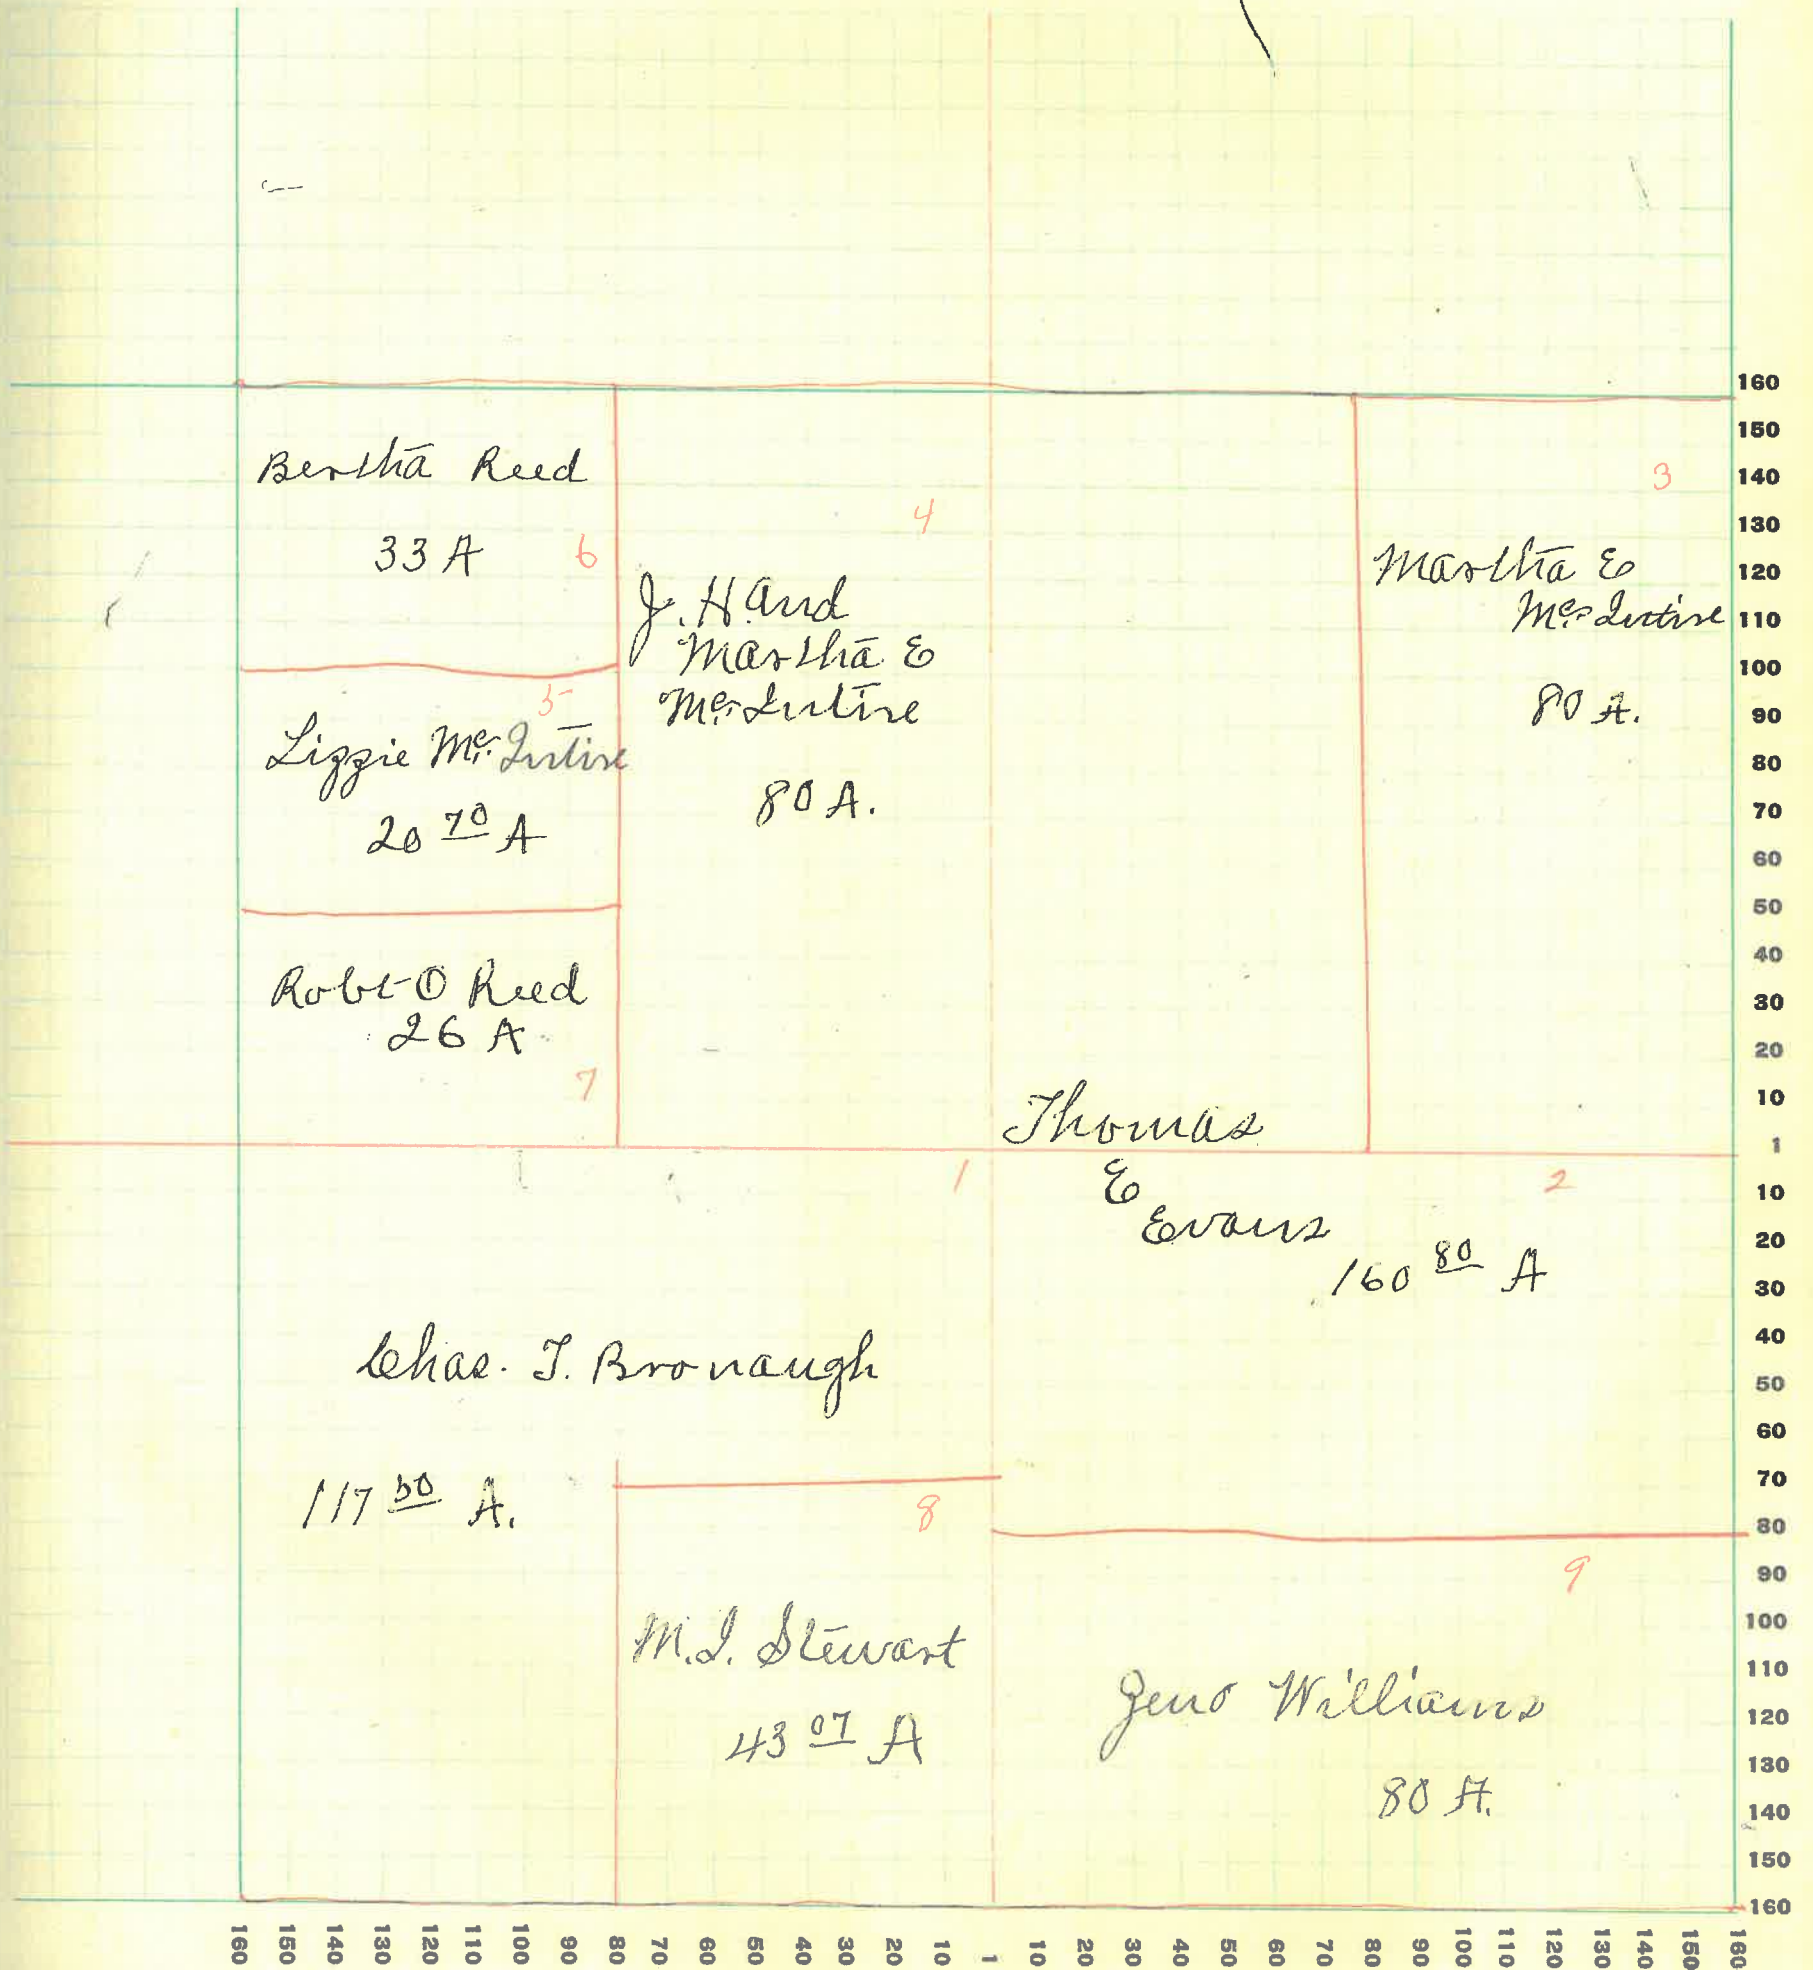 Bertha Reed
33 A
6
5
Lizzie Mc. Intire
20 70 A
Robt O Reed
26 A
7
4
J. H. and
Martha E
Mc. Intire
80 A.
3
Martha E
Mc. Intire
80 A.
Thomas
E
Evans
160 80 A
2
1
Chas. T. Bronaugh
117 50 A.
8
M. I. Stewart
43 07 A
9
Zeno Williams
80 A.
160
150
140
130
120
110
100
90
80
70
60
50
40
30
20
10
1
10
20
30
40
50
60
70
80
90
100
110
120
130
140
150
160
160 150 140 130 120 110 100 90 80 70 60 50 40 30 20 10 1 10 20 30 40 50 60 70 80 90 100 110 120 130 140 150 160